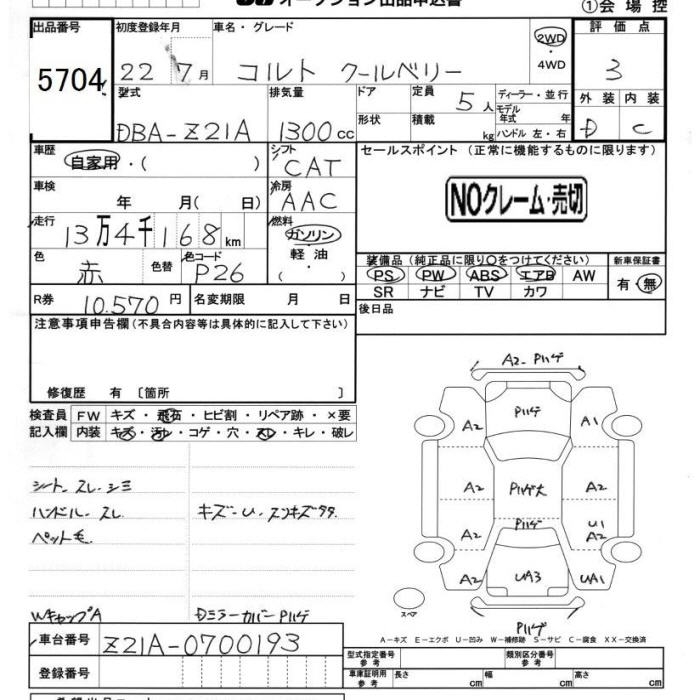 オークション出品申込書
①会場控
出品番号 初度登録年月 車名・グレード 2WD ・4WD 評価点
5704 22年 7月 コルト クールベリー 3
型式 排気量 ドア 定員 5人 ディーラー・並行 外装 内装
DBA-Z21A 1300cc 形状 積載 kg モデル年式 年 ハンドル 左・右 D C
車歴 自家用・( ) シフト CAT セールスポイント (正常に機能するものに限ります)
車検 年 月( 日) 冷房 AAC NOクレーム・売切
走行 13万4千168km 燃料 ガソリン 軽油 ・( )
色 赤 色替 色コード P26 装備品 (純正品に限り○をつけてください) 新車保証書
PS PW ABS エアB AW 有・無
SR ナビ TV カワ
R券 10,570円 名変期限 月 日 後日品
注意事項申告欄 (不具合内容等は具体的に記入して下さい)
修復歴 有 〔箇所 〕
検査員 FW キズ・飛石・ヒビ割・リペア跡・×要
記入欄 内装 キズ・汚レ・コゲ・穴・スレ・キレ・破レ
シート スレ シミ
ハンドル スレ キズ・U・スンキズタタ
ペット毛
WキャップA DミラーカバーPハゲ
車台番号 Z21A-0700193
登録番号
A2 Pハゲ
Pハゲ
A2 A1
A2 Pハゲ大 A2
A2 Pハゲ U1 A2
A2 UA3 UA1
スペア
Pハゲ
A-キズ E-エクボ U-凹み W-補修跡 S-サビ C-腐食 XX-交換済
型式指定番号 参考 類別区分番号 参考
車庫証明用 参考 長さ cm 幅 cm 高さ cm